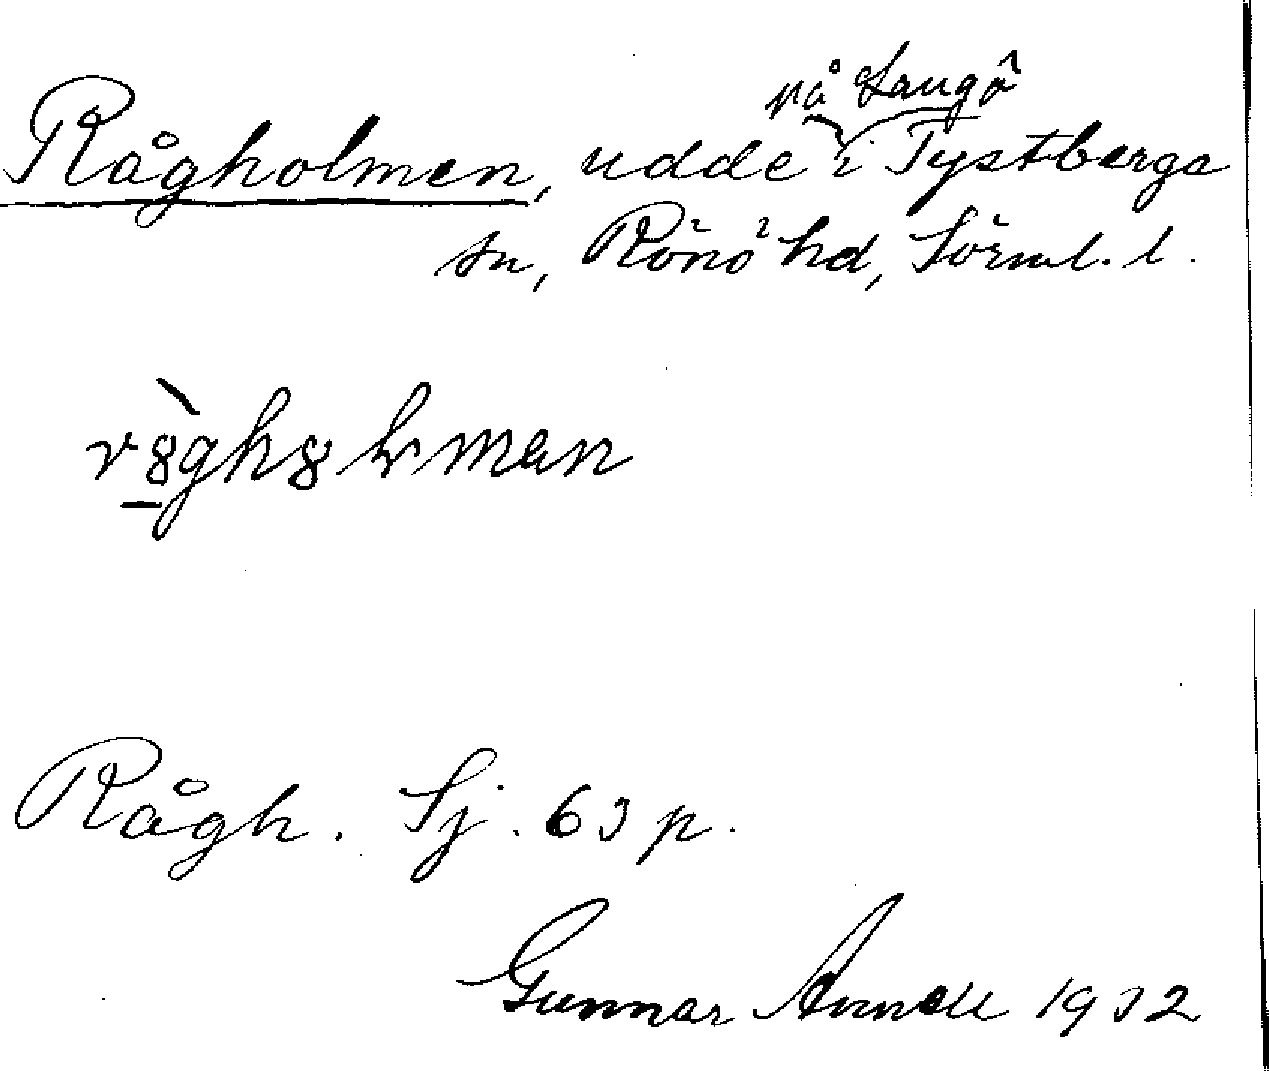 på Långö
Rågholmen, udde i Tystberga
sn, Rönö hd, Sörml. l.
Rågh. Sj. 63 p.
Gunnar Annell 1932